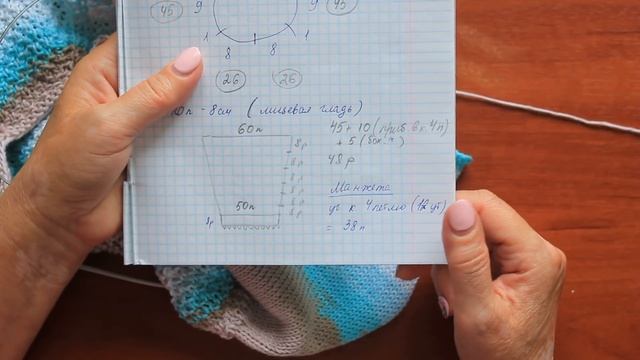 45 9 9 45
1 1
8 8
26 26
п - 8см ( лицевая гладь )
60п 45 + 10 ( приб. в к. 4п )
8р + 5 ( бок. п )
8р 48 р
8р
8р Манжета
8р уб к 4 петлю ( 12 уб )
50п 8р = 38п
8р